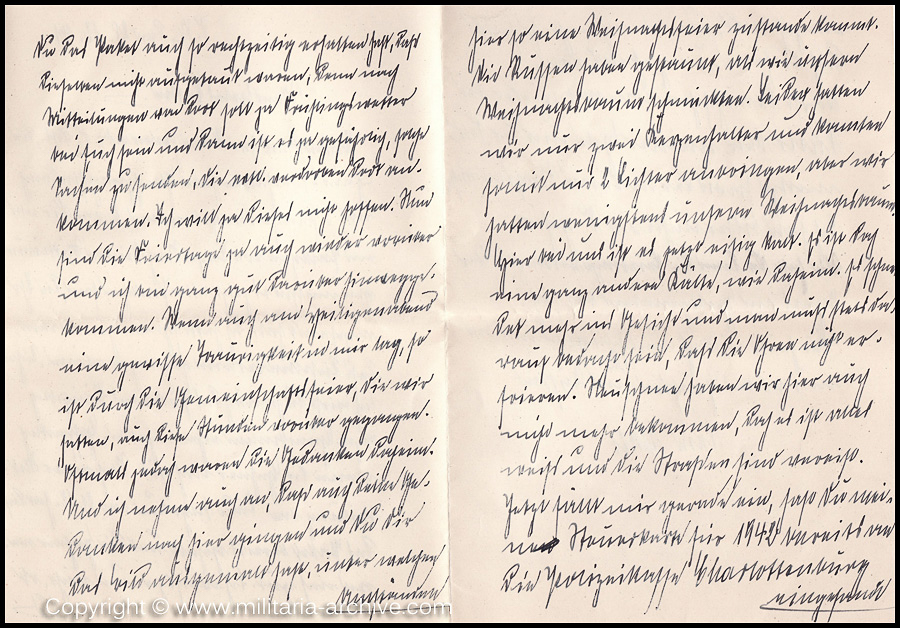 Du das Paket auch so rechtzeitig erhalten hast, daß
dieselben nicht aufgetaut waren, denn nach
Mitteilungen von dort soll ja Frühlingswetter
bei Euch sein und dann ist es ja gefährlich, solche
Sachen zu senden, die evtl. verdorben dort an-
kommen. Ich will ja dieses nicht hoffen. Nun
sind die Feiertage ja auch wieder vorüber
und ich bin ganz gut darüber hinwegge-
kommen. Wenn auch am Heiligenabend
eine gewisse Traurigkeit in mir lag, so
ist durch die Gemeinschaftsfeier, die wir
hatten, auch diese Stunden vorüber gegangen.
Oftmals jedoch waren die Gedanken daheim.
Und ich nehme auch an, daß auch Deine Ge-
danken nach hier gingen und Du Dir
das Bild ausgemalt hast, unter welchen
Umständen
hier so eine Weihnachtsfeier zustande kommt.
Die Russen haben gestaunt, als wir unsern
Weihnachtsbaum schmückten. Leider hatten
wir nur zwei Kerzenhalter und konnten
somit nur 2 Lichter anbringen, aber wir
hatten wenigstens unsern Weihnachtsbaum.
Hier bei uns ist es jetzt eisig kalt. Es ist doch
eine ganz andere Kälte, wie daheim. Es schnei
det mehr ins Gesicht und man muß stets da-
rauf bedacht sein, daß die Ohren nicht er-
frieren. Neuschnee haben wir hier auch
nicht mehr bekommen, doch es ist alles
weiß und die Straßen sind vereist.
Jetzt fällt mir gerade ein, hast Du mei-
ne Steuerkarte für 1942 bereits an
die Polizeikasse Charlottenburg
eingesandt
Copyright © www.militaria-archive.com